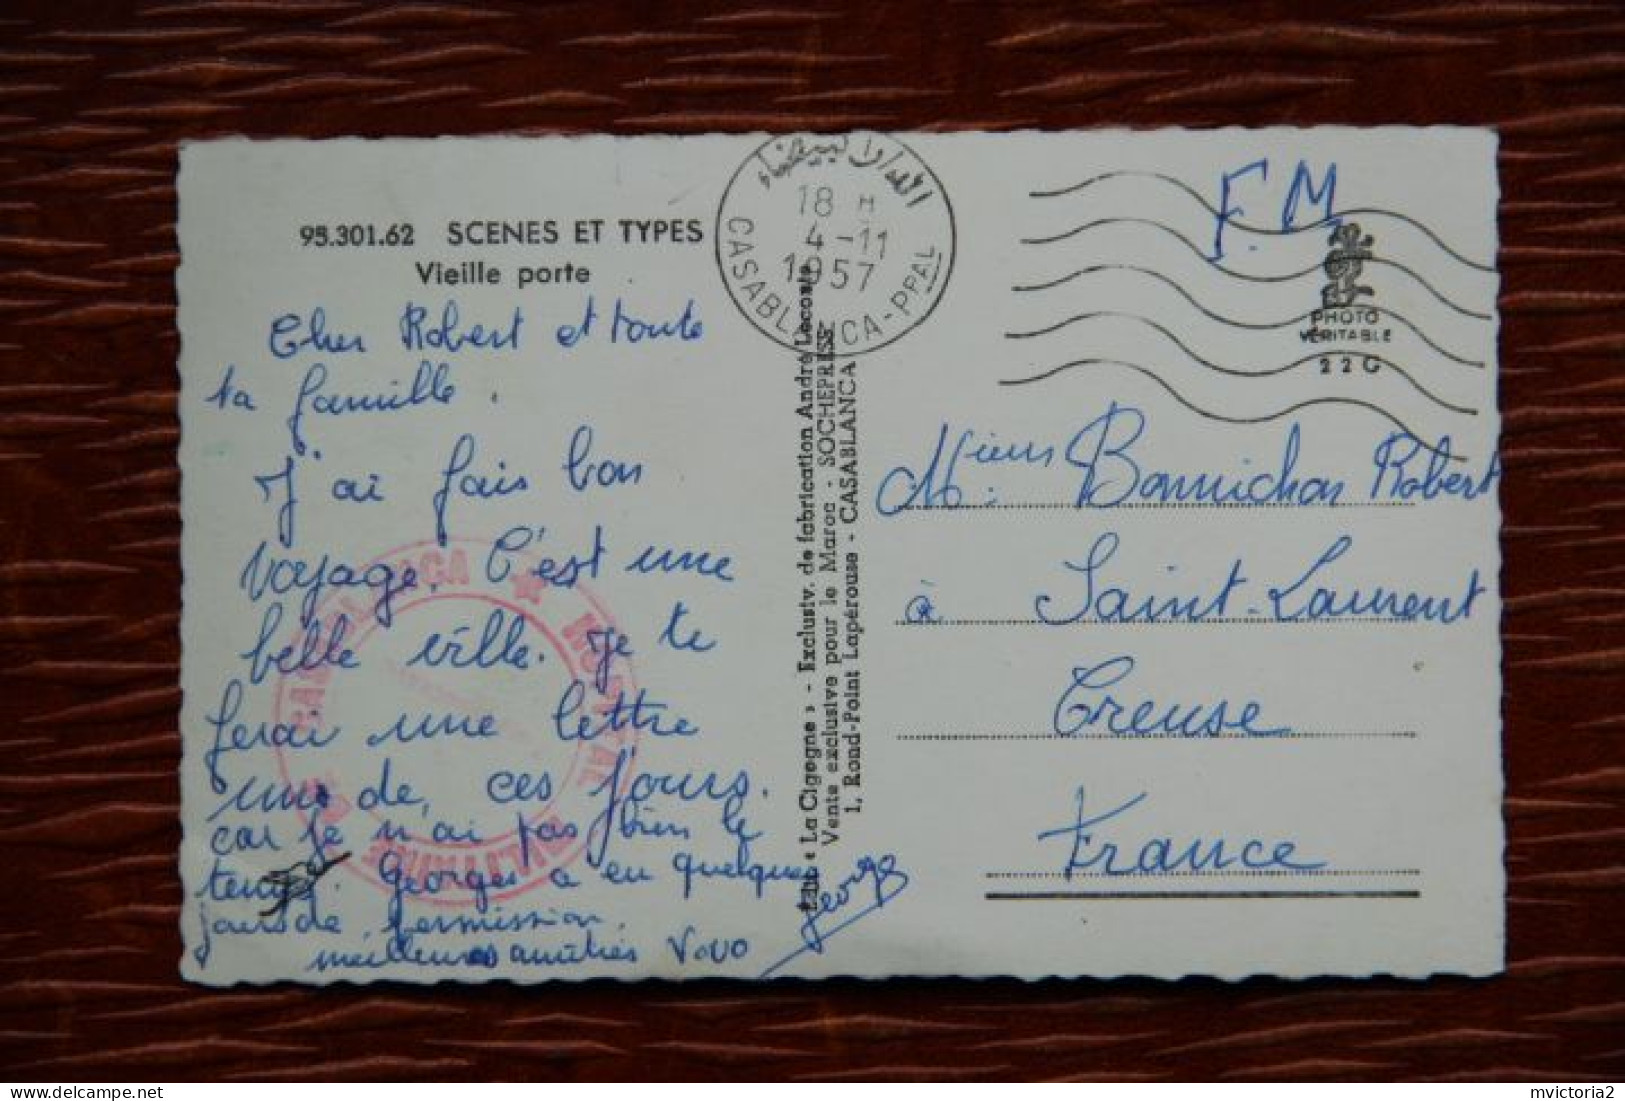 95.301.62 SCENES ET TYPES
Vieille porte
Cher Robert et toute
ta famille.
J'ai fais bon
voyage. C'est une
belle ville. Je te
ferai une lettre
un de ces jours.
car je n'ai pas bien le
temps. Georges a eu quelques
jours de permission.
meilleures amitiés Vovo
Georges
CASABLANCA ★ HOPITAL
MILITAIRE
الدار البيضاء
18 H
4-11
1957
CASABLANCA-PPAL
« La Cigogne » - Exclusiv. de fabrication André Leconte
Vente exclusive pour le Maroc - SOCHEPRESS
1, Rond-Point Lapérouse - CASABLANCA
F.M
PHOTO
VERITABLE
22 G
Bonnichon Robert
à Saint-Laurent
Creuse
France
mvictoria2